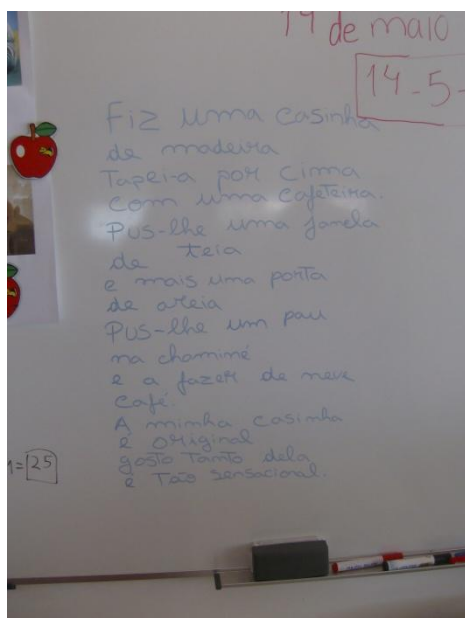 14 de maio
14-5-
Fiz uma casinha
de madeira
Tapei-a por cima
com uma cafeteira.
Pus-lhe uma janela
de teia
e mais uma porta
de areia
Pus-lhe um pau
na chaminé
e a fazer de neve
café.
A minha casinha
é original
gosto tanto dela
é tão sensacional.
=25